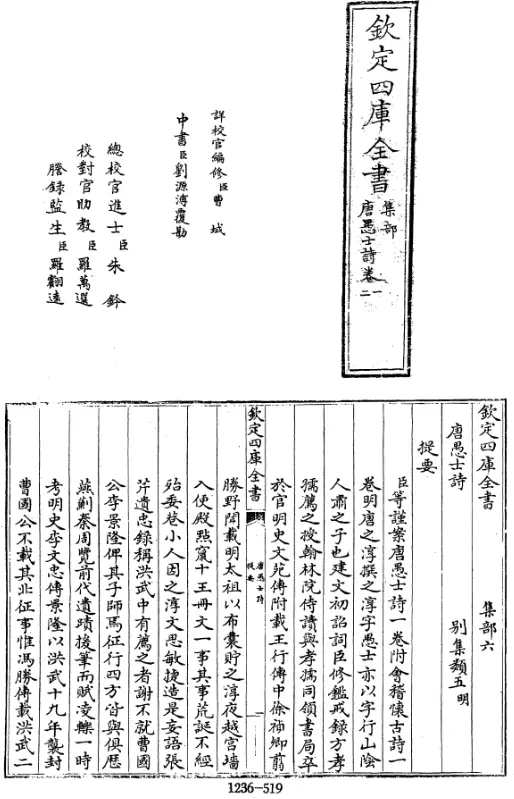 欽定四庫全書
集部
唐愚士詩卷一
二
詳校官編修臣曹城
中書臣劉源溥覆勘
總校官進士臣朱鈐
校對官助教臣羅萬選
謄錄監生臣羅翿遠
欽定四庫全書 集部六
唐愚士詩 別集類五明
提要
臣等謹案唐愚士詩一卷附會稽懷古詩一
卷明唐之淳撰之淳字愚士亦以字行山陰
人肅之子也建文初詔詞臣修鑑戒録方孝
孺薦之授翰林院侍讀與孝孺同領書局卒
於官明史文苑傳附載王行傳中徐禎卿翦
欽定四庫全書 唐愚士詩 提要 一
勝野聞載明太祖以布囊貯之淳夜越宮墻
入便殿點竄十王冊文一事其事荒誕不經
殆委巷小人因之淳文思敏捷造是妄語張
芹遺忠錄稱洪武中有薦之者謝不就曹國
公李景隆俾其子師焉征行四方皆與俱歴
燕薊秦周覽前代遺蹟援筆而賦凌轢一時
考明史李文忠傳景隆以洪武十九年襲封
曹國公不載其北征事惟馮勝傳載洪武二
1236-519